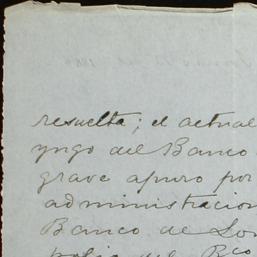 resuelta; el actual
yngo del Banco
grave apuro por
administracion
Banco de Lon
del Bco